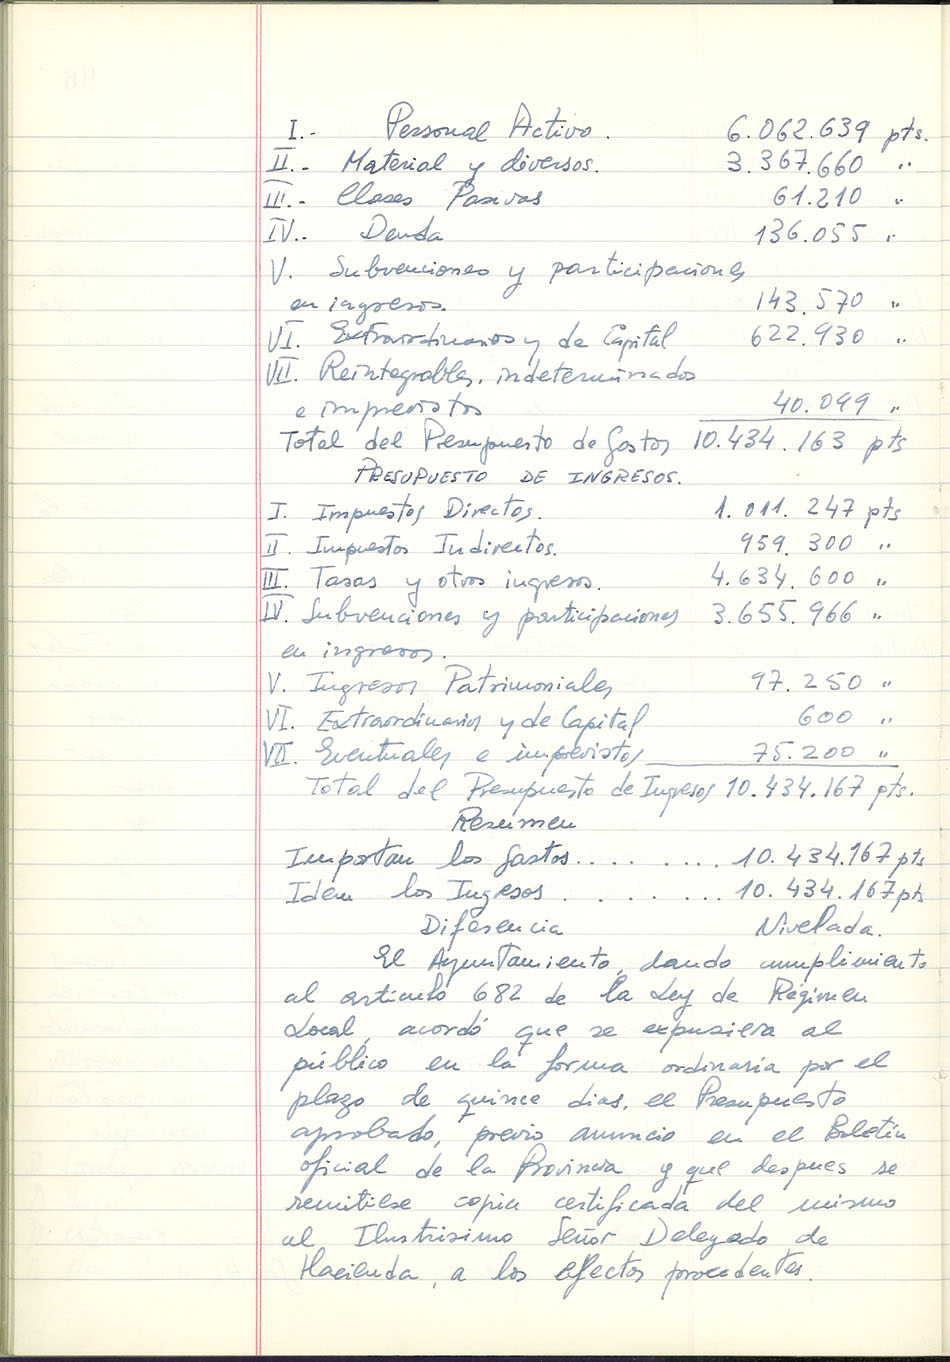 I.- Personal Activo. 6.062.639 pts.
II.- Material y diversos. 3.367.660 "
III.- Clases Pasivas 61.210 "
IV.- Deuda 136.055 "
V. Subvenciones y participaciones
en ingresos. 143.570 "
VI. Extraordinarios y de Capital 622.930 "
VII. Reintegrables, indeterminados
e imprevistos 40.099 "
Total del Presupuesto de Gastos 10.434.163 pts
PRESUPUESTO DE INGRESOS.
I. Impuestos Directos. 1.011.247 pts
II. Impuestos Indirectos. 959.300 "
III. Tasas y otros ingresos. 4.634.600 "
IV. Subvenciones y participaciones 3.655.966 "
en ingresos.
V. Ingresos Patrimoniales 97.250 "
VI. Extraordinarios y de Capital 600 "
VII. Eventuales e imprevistos 75.200 "
Total del Presupuesto de Ingresos 10.434.167 pts.
Resumen
Importan los Gastos.... .... 10.434.167 pts
Idem los Ingresos . . . .... 10.434.167 pts
Diferencia Nivelada.
El Ayuntamiento, dando cumplimiento
al artículo 682 de la Ley de Régimen
Local, acordó que se expusiera al
público en la forma ordinaria por el
plazo de quince dias, el Presupuesto
aprobado, previo anuncio en el Boletín
oficial de la Provincia y que despues se
remitiese copia certificada del mismo
al Ilustrisimo Señor Delegado de
Hacienda, a los efectos procedentes.